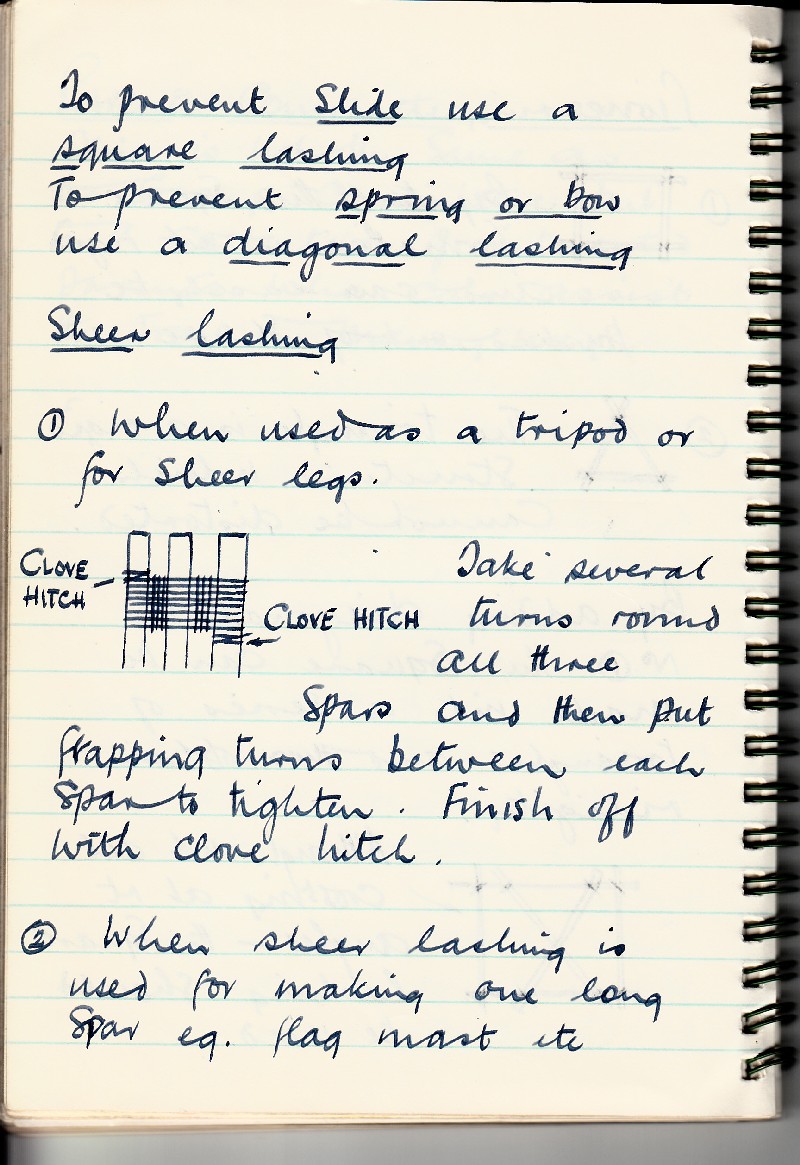 To prevent Slide use a
square lashing
To prevent spring or bow
use a diagonal lashing
Sheer lashing
① When used as a tripod or
for Sheer legs.
CLOVE
HITCH
CLOVE HITCH
Take several
turns round
all three
Spars and then put
frapping turns between each
Spar to tighten. Finish off
with clove hitch.
② When sheer lashing is
used for making one long
Spar eg. flag mast etc